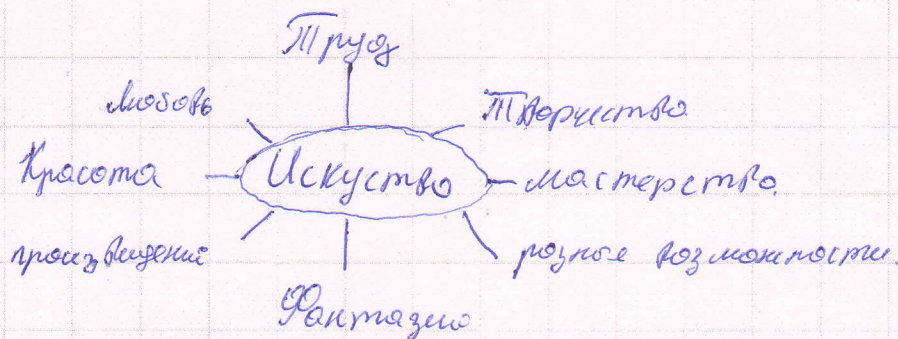 Труд
Любовь
Творчество
Красота
Искуство
мастерство.
произведений
разные возможности.
Фантазию